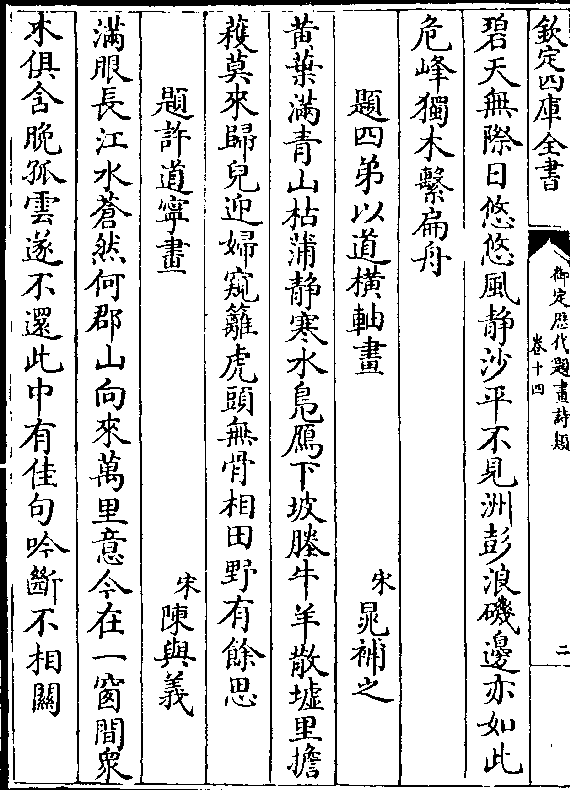 欽定四庫全書
御定歴代題畫詩類
卷十四
二
碧天無際日悠悠風静沙平不見洲彭浪磯邊亦如此
危峰獨木繫扁舟
題四弟以道横軸畫
宋
晁補之
黄葉滿青山枯蒲静寒水鳬鴈下坡塍牛羊散墟里擔
穫莫來歸兒迎婦窺籬虎頭無骨相田野有餘思
題許道寧畫
宋
陳與義
滿眼長江水蒼然何郡山向來萬里意今在一窗間衆
木俱含晚孤雲遂不還此中有佳句吟斷不相關